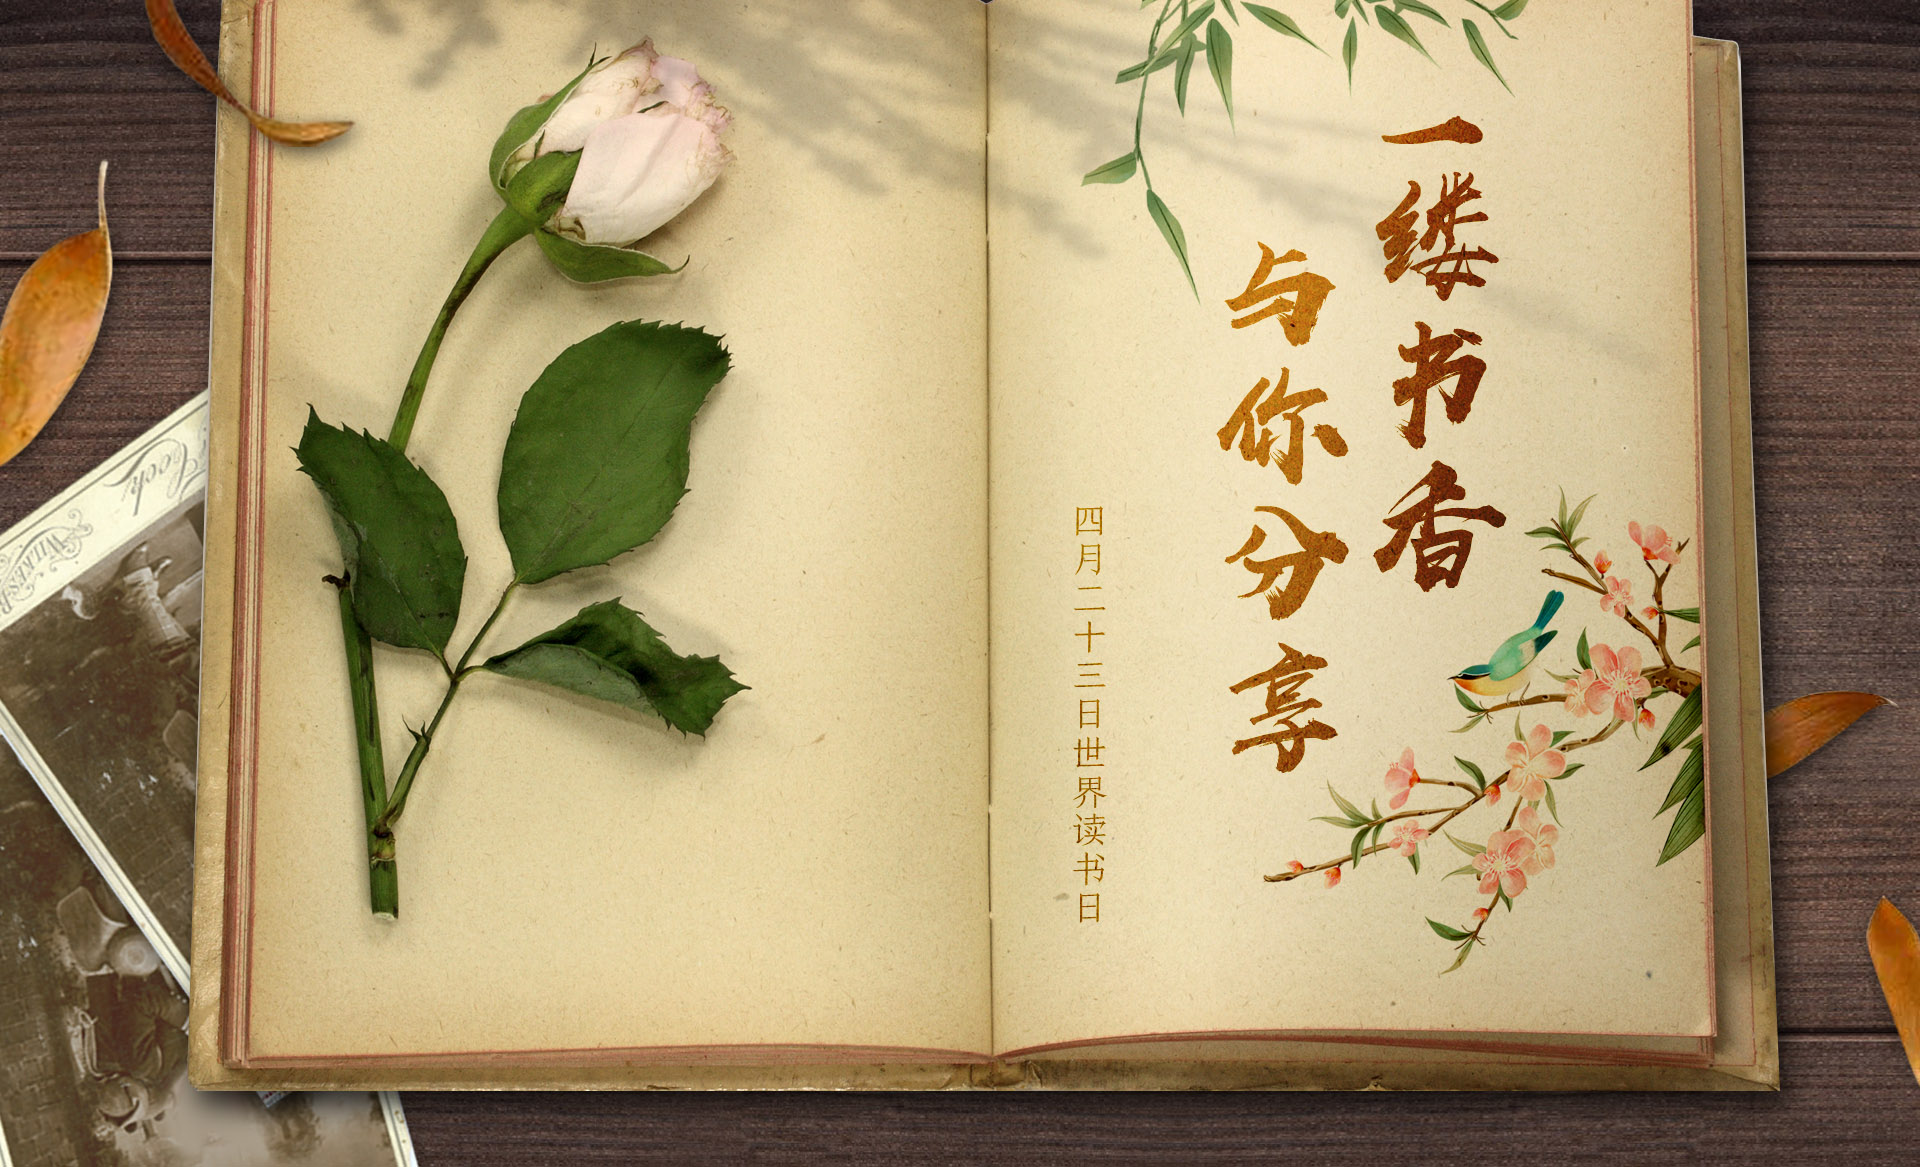 一缕书香
与你分享
四月二十三日世界读书日
Cook